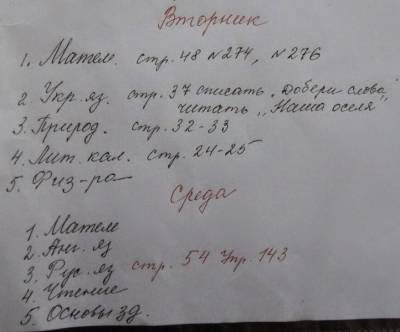 Вторник
1. Матем. стр. 48 №274, №276
2. Укр. яз. стр. 37 списать „Добери слова"
читать „Наша оселя"
3. Природ. стр. 32-33
4. Лит. кол. стр. 24-25
5. Физ-ра
Среда
1. Матем
2. Анг. яз
3. Рус. яз стр. 54 Упр. 143
4. Чтение
5. Основы зд.